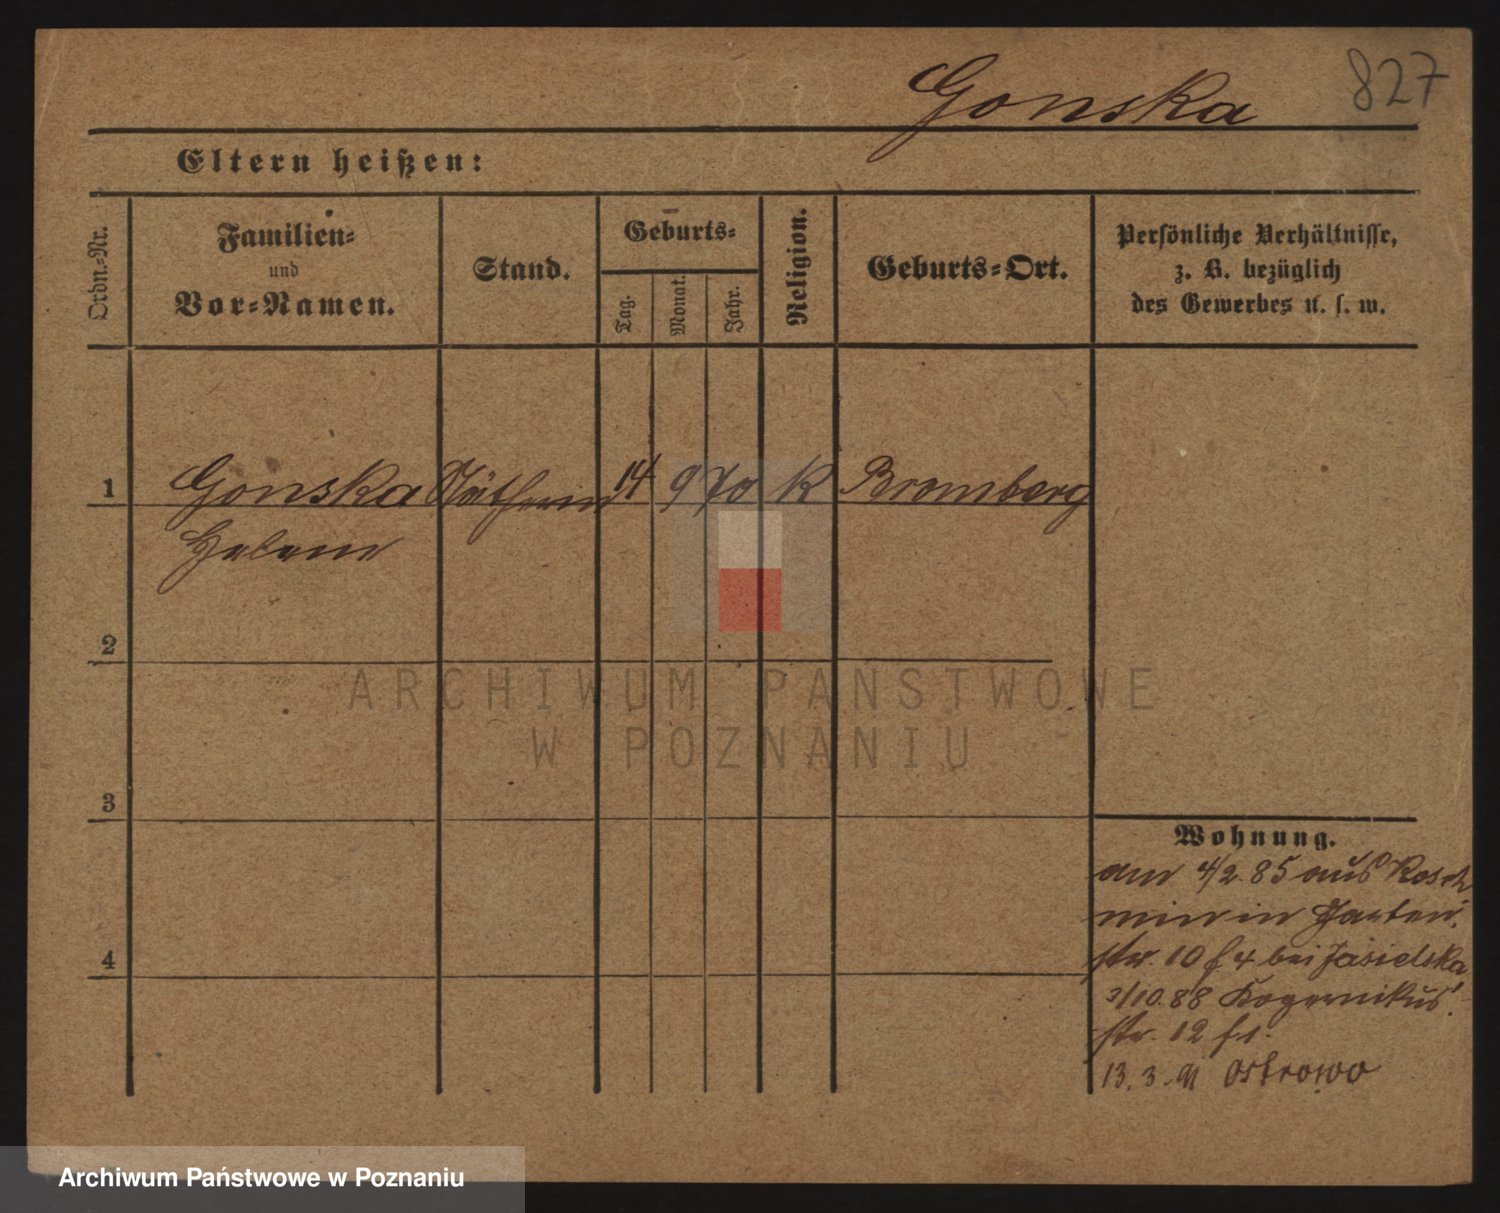 827
Gonska
Eltern heißen:
Ordn.-Nr.
Familien-
und
Vor-Namen.
Stand.
Geburts-
Tag.
Monat.
Jahr.
Religion.
Geburts-Ort.
Persönliche Verhältnisse,
z. B. bezüglich
des Gewerbes u. s. w.
1 Gonska Nätherin 14 9 70 K Bromberg
Helene
2
3
4
Wohnung.
am 4/2. 85 aus Kosch
min in Garten
str. 10 f 4 bei Jasielska
3/10. 88 Kopernikus
str. 12 f 1.
13. 3. 91 Ostrowo
ARCHIWUM PAŃSTWOWE
W POZNANIU
Archiwum Państwowe w Poznaniu